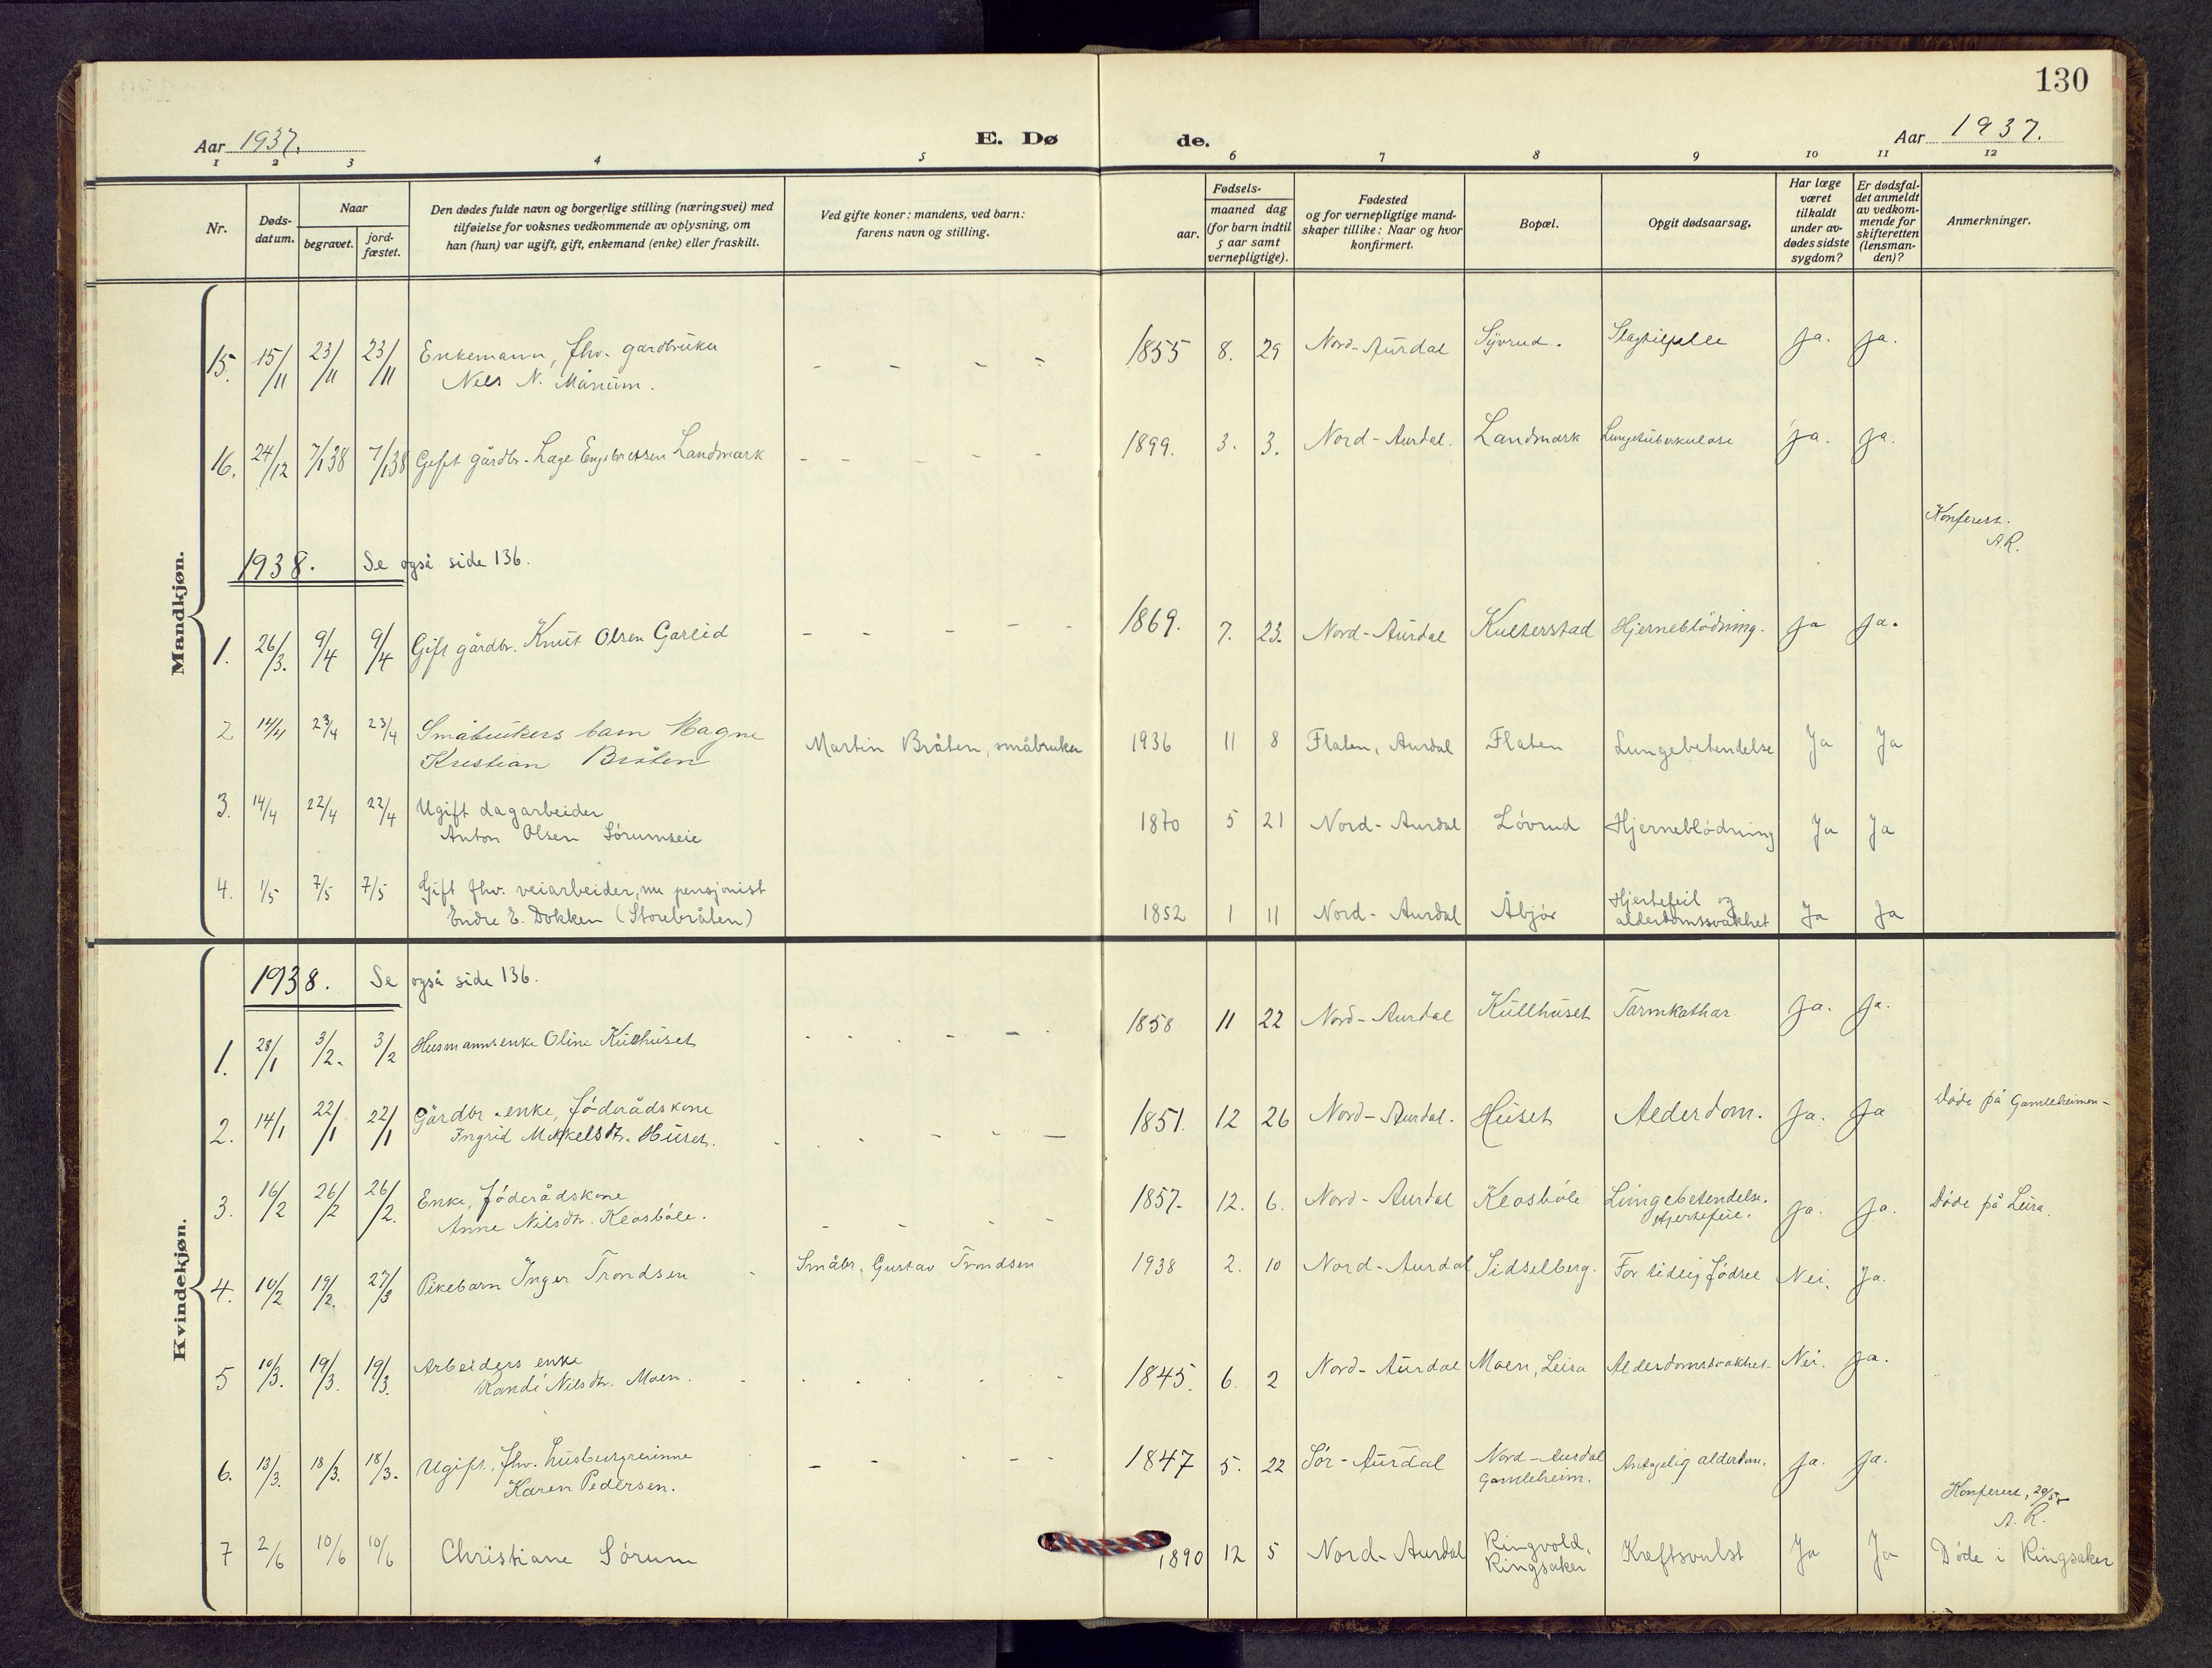 130
Aar 1937.
E. Dø
de.
Aar 1937.
1 2 3 4 5 6 7 8 9 10 11 12
Nr.
Døds-
datum.
Naar
begravet.
jord-
fæstet.
Den dødes fulde navn og borgerlige stilling (næringsvei) med
tilføielse for voksnes vedkommende av oplysning, om
han (hun) var ugift, gift, enkemand (enke) eller fraskilt.
Ved gifte koner: mandens, ved barn:
farens navn og stilling.
Fødsels-
aar.
maaned dag
(for barn indtil
5 aar samt
vernepligtige).
Fødested
og for vernepligtige mand-
skaper tillike: Naar og hvor
konfirmert.
Bopæl.
Opgit dødsaarsag.
Har læge
været
tilkaldt
under av-
dødes sidste
sygdom?
Er dødsfal-
det anmeldt
av vedkom-
mende for
skifteretten
(lensman-
den)?
Anmerkninger.
Mandkjøn.
15. 15/11 23/11 23/11 Enkemann, fhv. gardbruker
Nils N. Månum.
- - - - 1855 8. 29 Nord-Aurdal Syvrud. Slagtilfelle ja. ja.
16. 24/12 7/1 38 7/1 38 Gift gårdbr. Lage Engebretsen Landmark - - - - - 1899. 3. 3. Nord-Aurdal. Landmark Lungetuberkulose ja. ja.
Konferert.
A.R.
1938. Se også side 136.
1. 26/3. 9/4 9/4 Gift gårdbr. Knut Olsen Garlid - - - - - 1869. 7. 23. Nord-Aurdal Kulterstad Hjerneblödning. ja ja.
2 14/4 23/4 23/4 Småbrukers barn Magne
Kristian Bråten
Martin Bråten, småbruker 1936 11 8 Flaten, Aurdal Flaten Lungebetendelse Ja Ja
3. 14/4 22/4 22/4 Ugift dagarbeider
Anton Olsen Sörumseie
1870 5 21 Nord-Aurdal Lövrud Hjerneblödning Ja Ja
4. 1/5 7/5 7/5 Gift fhv. veiarbeider, nu pensjonist
Endre E. Dokken (Storebråten)
1852 1 11 Nord-Aurdal Åbjör Hjertefeil og
alderdomssvakhet Ja Ja
Kvindekjøn.
1938. Se også side 136.
1. 28/1 3/2. 3/2 Husmannsenke Oline Kulhuset - - - - - 1858 11 22 Nord-Aurdal Küllhuset Tarmkathar ja. ja.
2. 14/1 22/1 22/1 Gårdbr.enke, föderådskone
Ingrid Mikkelsdtr. Huset.
- - - - - 1851. 12 26 Nord-Aurdal. Huset Alderdom. ja. ja Döde på Gamleheimen-
3. 16/2 26/2 26/2. Enke, föderådskone
Anne Nilsdtr. Klosböle.
- - - - 1857. 12. 6. Nord-Aurdal Klosböle Lungebetendelse.
Hjertefeil. ja. ja. Döde på Leira.
4. 10/2 19/2. 27/3 Pikebarn Inger Trondsen - Småbr. Gustav Trondsen 1938 2. 10 Nord-Aurdal Sidselberg. For tidlig födsel Nei. Ja.
5 10/3. 19/3. 19/3. Arbeiders enke
Randi Nilsdtr. Moen.
- - - - - 1845. 6. 2 Nord-Aurdal Moen, Leira Alderdomssvakhet- Nei. ja.
6. 13/3. 18/3. 18/3. Ugift, fhv. husbestyrerinne
Karen Pedersen.
- - - - - 1847 5. 22 Sör-Aurdal Nord-Aurdal
Gamleheim. Antagelig alderdom. ja. ja.
Konferert, 20/5
A.R.
7 2/6 10/6 10/6 Christiane Sörum 1890 12 5 Nord-Aurdal Ringvold,
Ringsaker Kreftsvulst Ja Ja Döde i Ringsaker